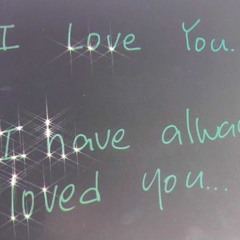 I Love You.
I have alwa
loved you...